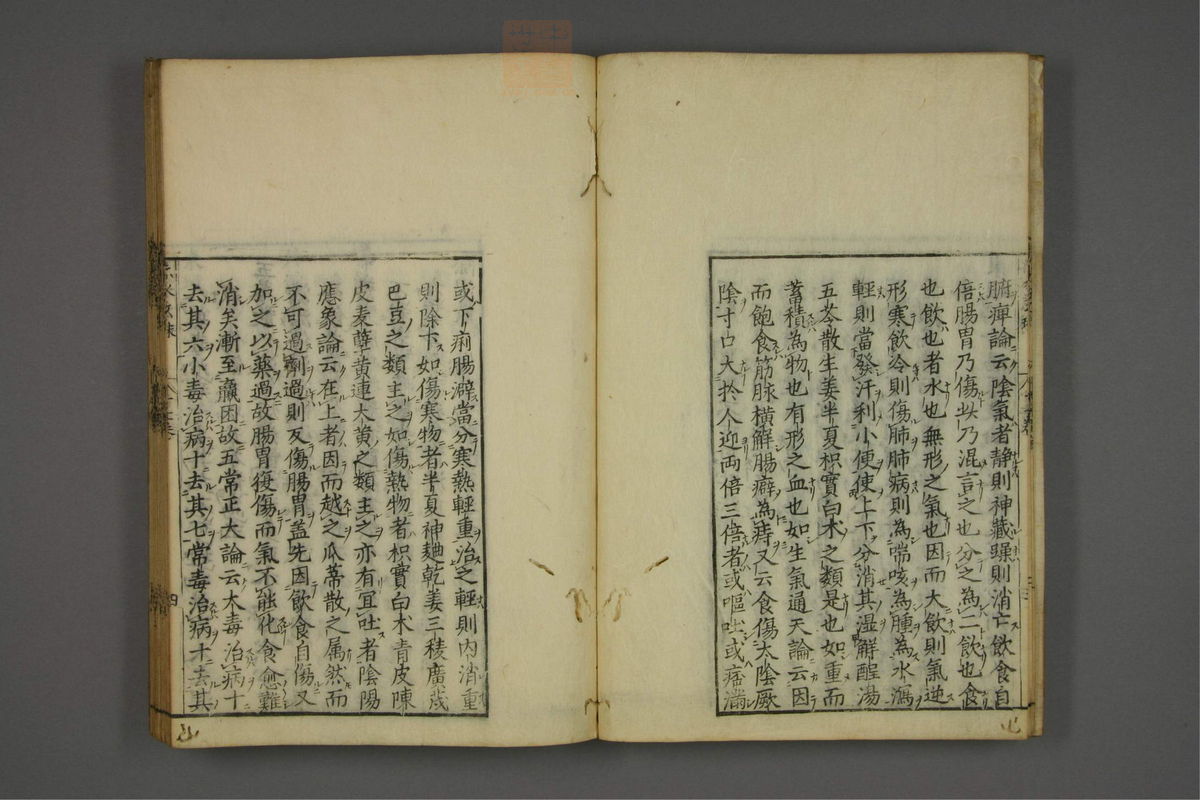 腑痺論云陰氣者静則神藏躁則消亡飲食自
倍腸胃乃傷此乃混言之也分之為二飲也食
也飲也者水也無形之氣也因而大飲則氣逆
形寒飲冷則傷肺肺病則為喘咳為腫為水瀉
輕則當發汗利小便使上下分消其湿解酲湯
五苓散生姜半夏枳實白术之類是也如重而
蓄積為物也有形之血也如生氣通天論云因
而飽食筋脉橫解腸癖為痔又云食傷太陰厥
陰寸口大於人迎両倍三倍者或嘔吐或痞滿
或下痢腸澼當分寒熱輕重治之輕則内消重
則除下如傷寒物者半夏神麯乾姜三稜廣茂
巴豆之類主之如傷熱物者枳實白术青皮陳
皮麦蘖黄連大黄之類主之亦有冝吐者陰陽
應象論云在上者因而越之瓜蒂散之属然而
不可過劑過則反傷腸胃盖先因飲食自傷又
加之以藥過故腸胃復傷而氣不能化食愈難
消矣漸至羸困故五常正大論云大毒治病十
去其六小毒治病十去其七常毒治病十去其
四